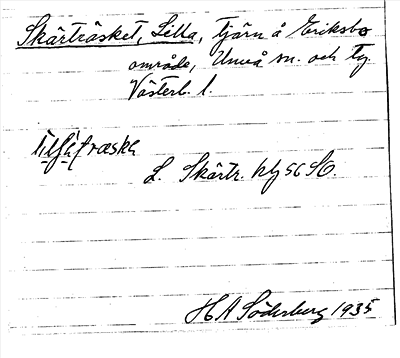 Skärträsket, Lilla, tjärn å Eriksbo
område, Umeå sn. och tg.
Västerb. l.
L. Skärtr. kbl 56 SO.
H A Söderberg 1935